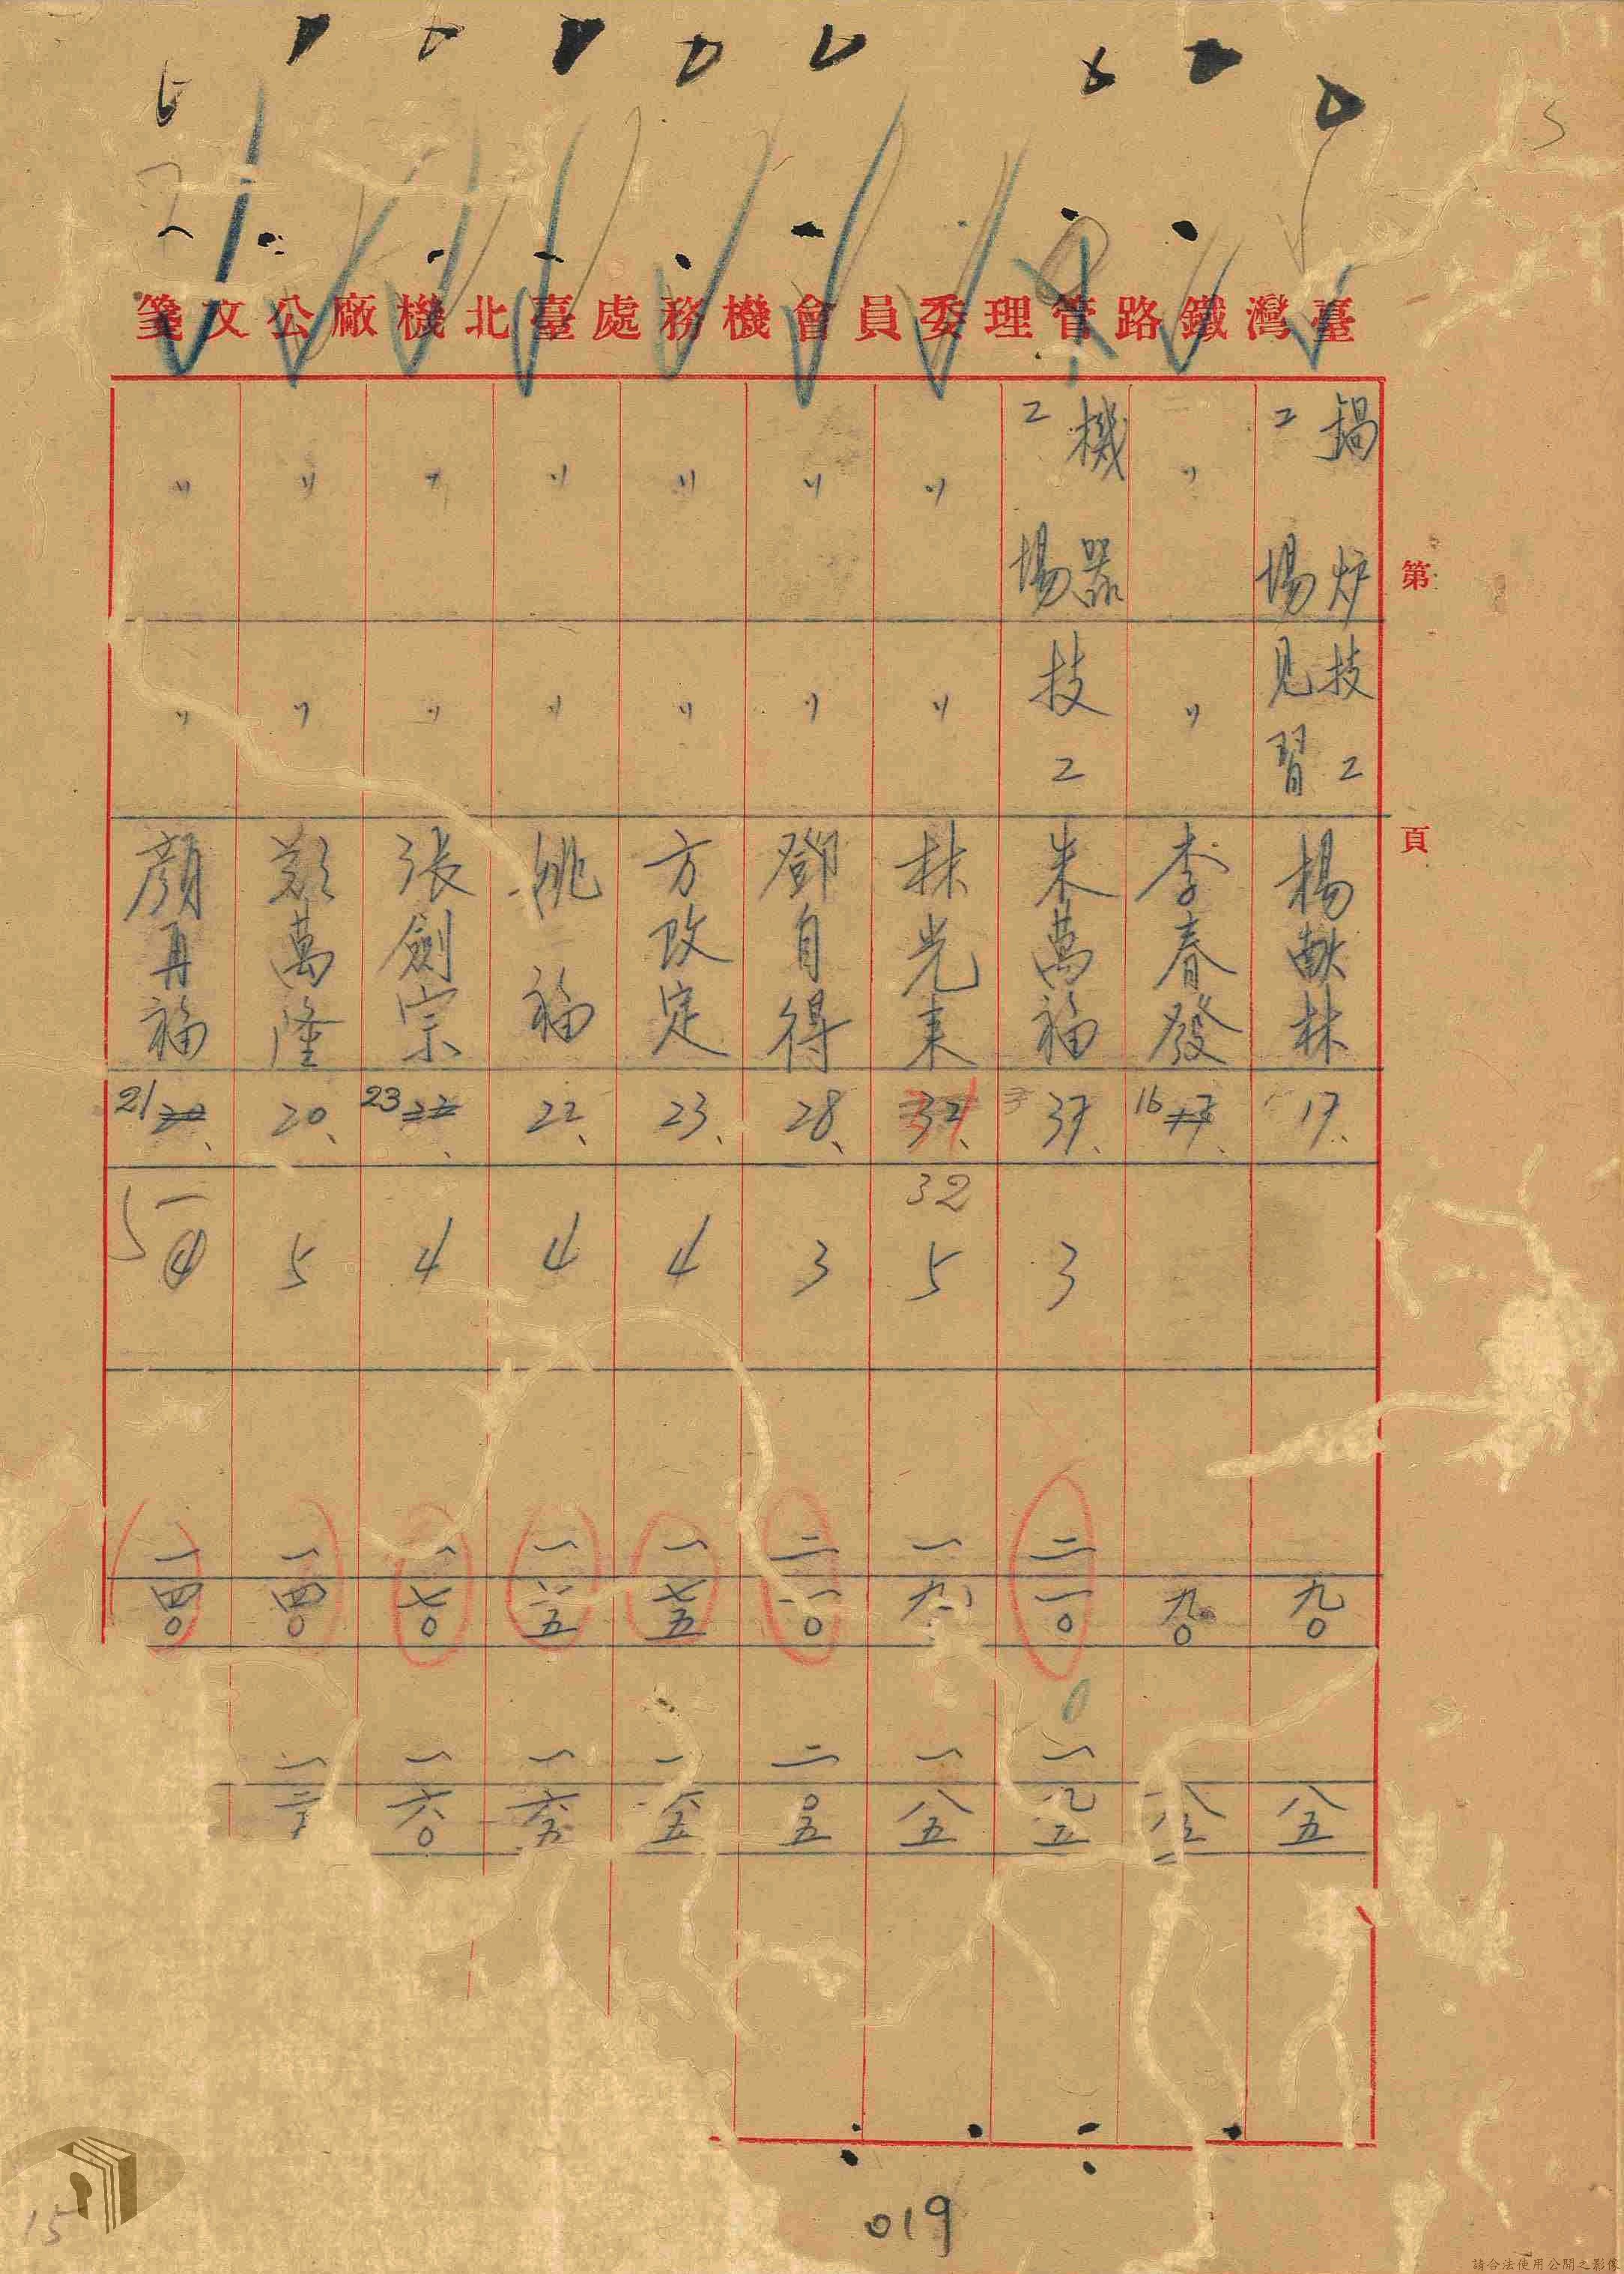 臺灣鐵路管理委員會機務處臺北機廠公文箋
第 頁
鍋炉工場 技工見習 楊献林 17、 九〇 八五
〃 〃 李春發 16 17、 九〇 八五
機器工場 技工 朱萬福 37、 3 二一〇 一九五
〃 〃 林光来 37、 32 5 一九 一八五
〃 〃 鄧自得 28、 3 二一〇 二〇五
〃 〃 方改定 23、 4 一七五 一六五
〃 〃 姚福 22、 4 一六五
〃 〃 張劍宗 23 22、 4 一七〇 一六〇
〃 〃 鄭萬隆 20、 5 一四〇
〃 〃 顏再福 21 20、 5 4 一四〇
019
15
請合法使用公開之影像